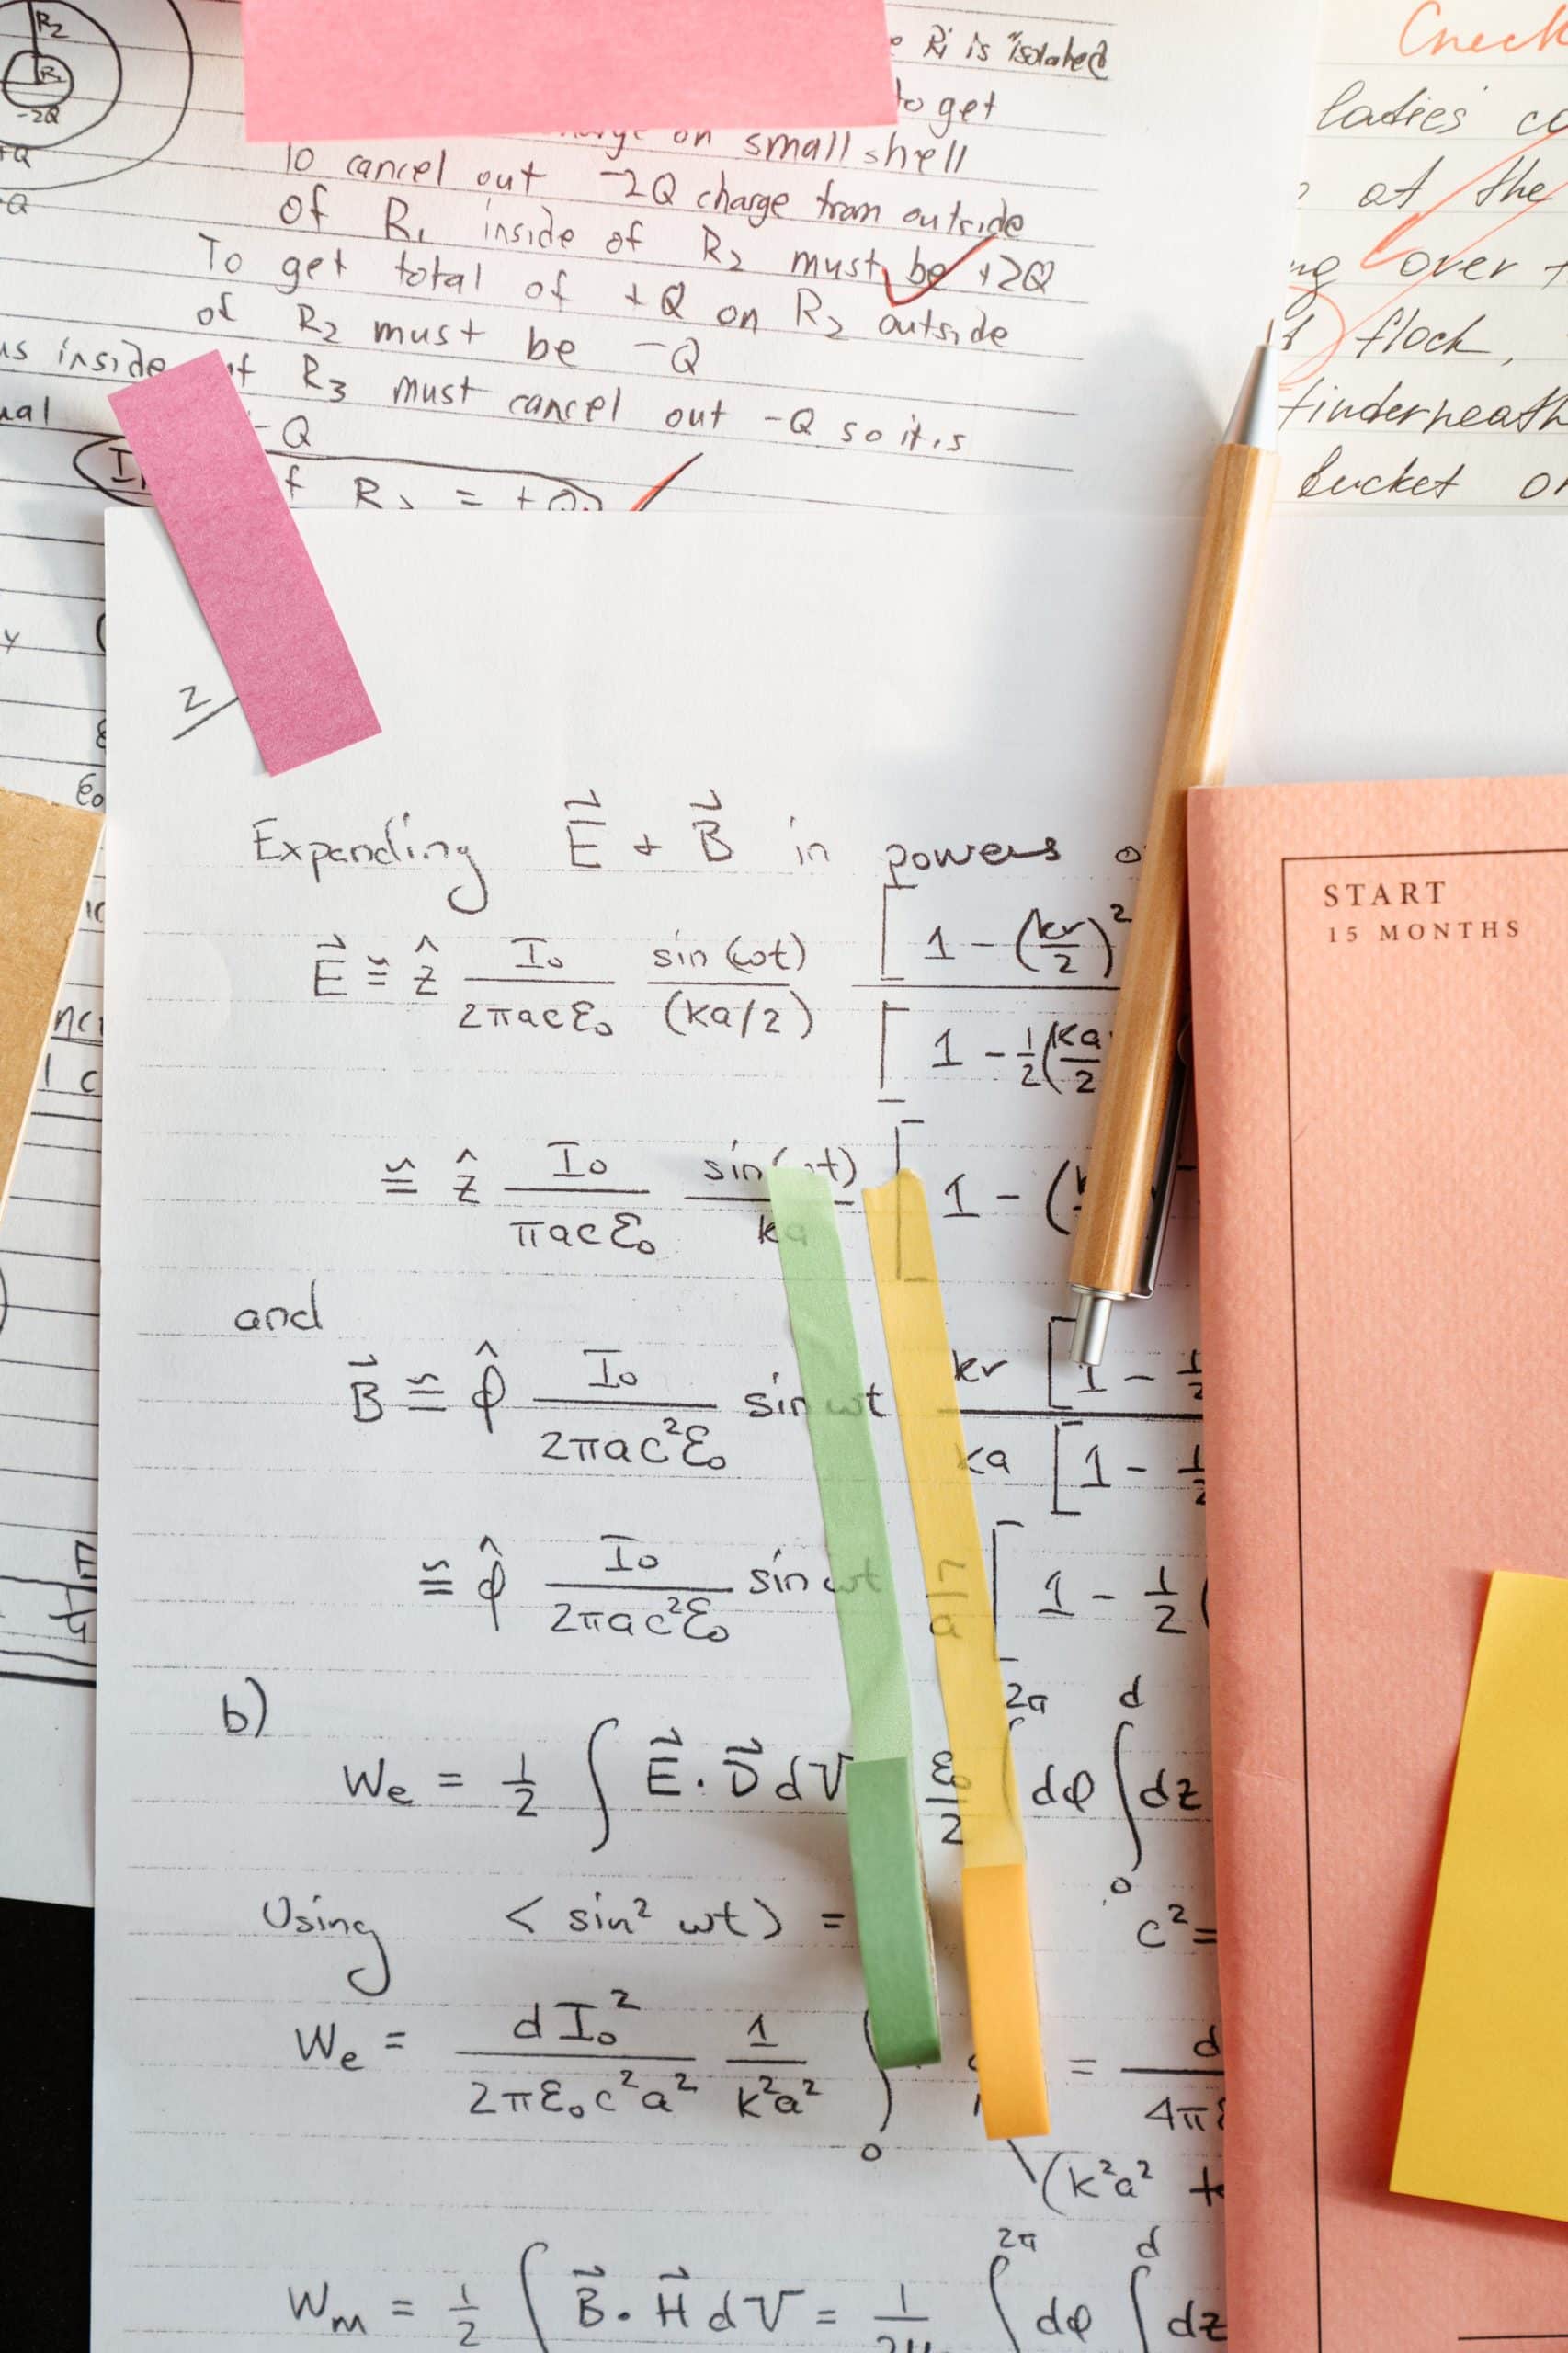 R₂
R₁
-2Q
R₁ is isolated
to get
on small shell
To cancel out -2Q charge from outside
of R₁ inside of R₂ must be +2Q
To get total of +Q on R₂ outside
of R₂ must be -Q
inside of R₃ must cancel out -Q so it is
-Q
R₃ = +Q
Check
ladies
at the
over
flock,
underneath
bucket
2
Expanding E⃗ + B⃗ in powers
E⃗ ≅ ẑ I₀/(2πacε₀) sin(ωt)/(ka/2) [1 - (kr/2)²
[1 - 1/2(ka/2
≅ ẑ I₀/(πacε₀) sin(ωt)/ka [1 - (
and
B⃗ ≅ φ̂ I₀/(2πac²ε₀) sin ωt kr [1 - 1/2
ka [1 - 1/2
≅ φ̂ I₀/(2πac²ε₀) sin ωt r/a [1 - 1/2 (
b)
We = 1/2 ∫ E⃗ · D⃗ dV ε₀/2 ∫ 2π dφ ∫₀ᵈ dz
Using < sin² ωt > = c² =
We = d I₀²/(2πε₀c²a²) 1/(k²a²) ∫₀ = d/4π
(k²a²
Wm = 1/2 ∫ B⃗ · H⃗ dV = 1/2μ ∫ 2π dφ ∫ d dz
START
15 MONTHS